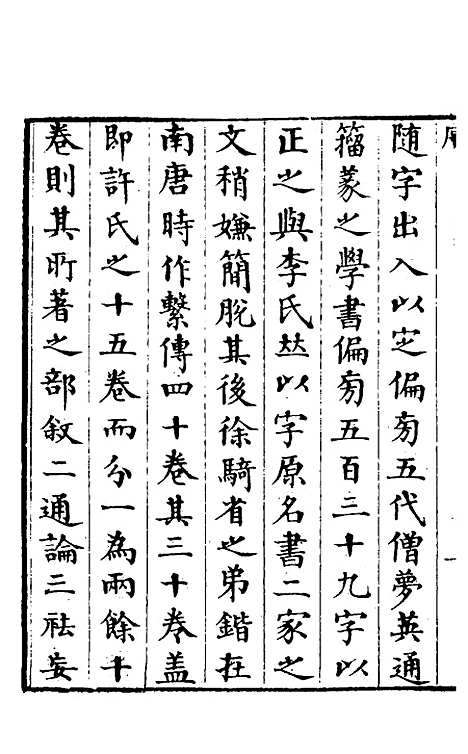 随字出入以定偏旁五代僧夢英通
籀篆之學書偏旁五百三十九字以
正之與李氏𠀤以字原名書二家之
文稍嫌簡脫其後徐騎省之弟鍇在
南唐時作繫傳四十卷其三十卷盖
即許氏之十五卷而分一為兩餘十
卷則其所著之部敘二通論三祛妄